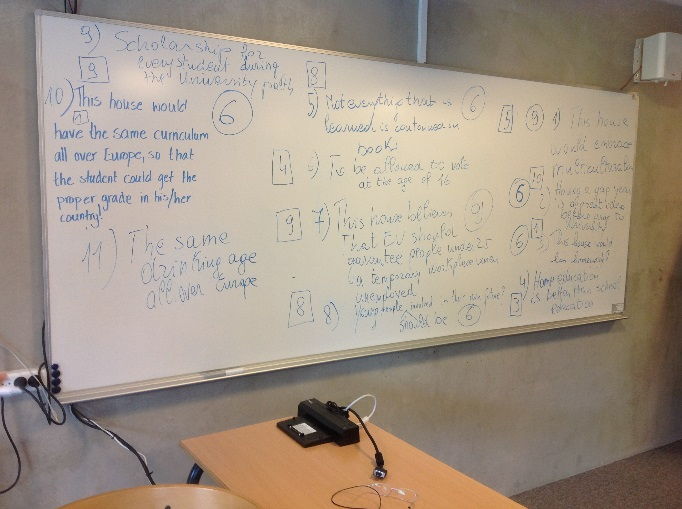 9) Scholarship for
9 every student during
the University path
10) This house would 6
1
have the same curriculum
all over Europe, so that
the student could get the
proper grade in his/her
country!
11) The same
drinking age
all over Europe
8
5) Not everything that is 6
learned is contained in
books
4 6) To be allowed to vote
at the age of 16
9 7) This house believes 9
that EU should
guarantee people under 25
a temporary workplace when
unemployed
8 8) Young people involved in their own future?
should be 6
5 9 1) This house
would embrace
multiculturality
10
6 Having a gap year
is of profit value
before going to
university
6 1 This house would
ban homework?
4) Home education
5 is better than school
education